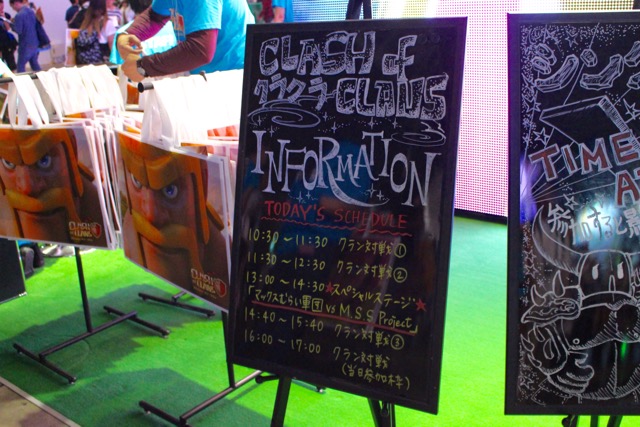 CLASH of
クラクラ CLANS
INFORMATION
TODAY'S SCHEDULE
10:30 〜 11:30 クラン対戦①
11:30 〜 12:30 クラン対戦②
13:00 〜 14:30 ★スペシャルステージ★
「マックスむらい軍団 vs M.S.S Project」
14:40 〜 15:40 クラン対戦③
16:00 〜 17:00 クラン対戦
(当日参加枠)
TIME
参加すると
CLASH
CLANS
CLASH
CLANS